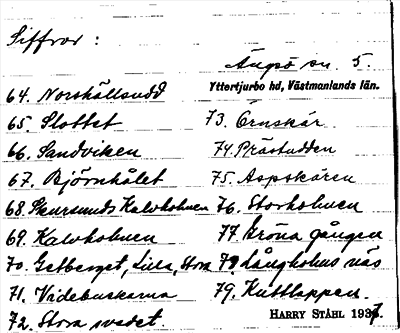 Siffror :
Ängsö sn. 5.
Yttertjurbo hd, Västmanlands län.
64. Norshällsudd
65. Slottet
66. Sandviken
67. Björnhålet
68. Skursunds Kalvholmen
69. Kalvholmen
70. Getberget, Lilla, Stora
71. Videbuskarna
72. Stora svedet.
73. Örnskär
74. Prästudden
75. Aspskären
76. Storholmen
77. Gröna gången
78. Långholms näs
79. Kuttlappen.
HARRY STÅHL 1937.